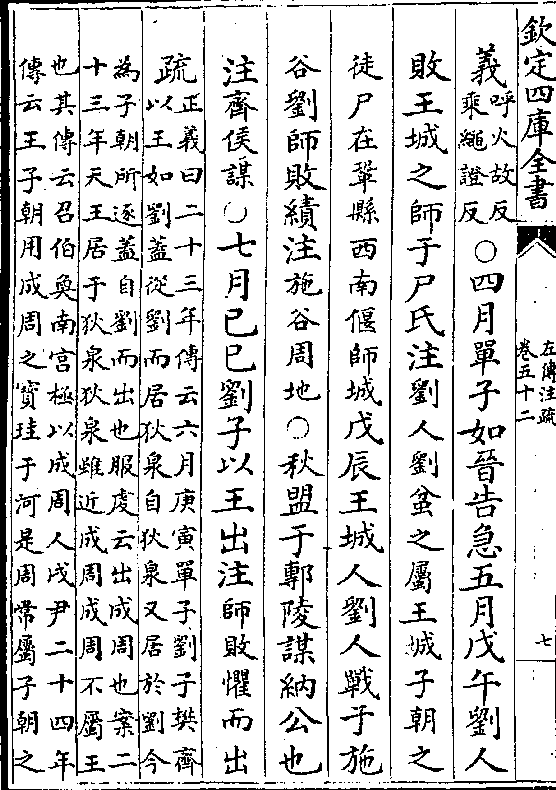 欽定四庫全書
左傳注疏
卷五十二
七
義
呼火故反
乘繩證反
○四月單子如晉告急五月戊午劉人
敗王城之師于尸氏注劉人劉蚠之屬王城子朝之
徒尸在鞏縣西南偃師城戊辰王城人劉人戰于施
谷劉師敗績注施谷周地○秋盟于鄟陵謀納公也
注齊侯謀○七月己巳劉子以王出注師敗懼而出
疏
正義曰二十三年傳云六月庚寅單子劉子樊齊
以王如劉蓋從劉而居狄泉自狄泉又居於劉今
為子朝所逐蓋自劉而出也服虔云出成周也案二
十三年天王居于狄泉狄泉雖近成周成周不屬王
也其傳云召伯奐南宮極以成周人戍尹二十四年
傳云王子朝用成周之寳珪于河是周常屬子朝之